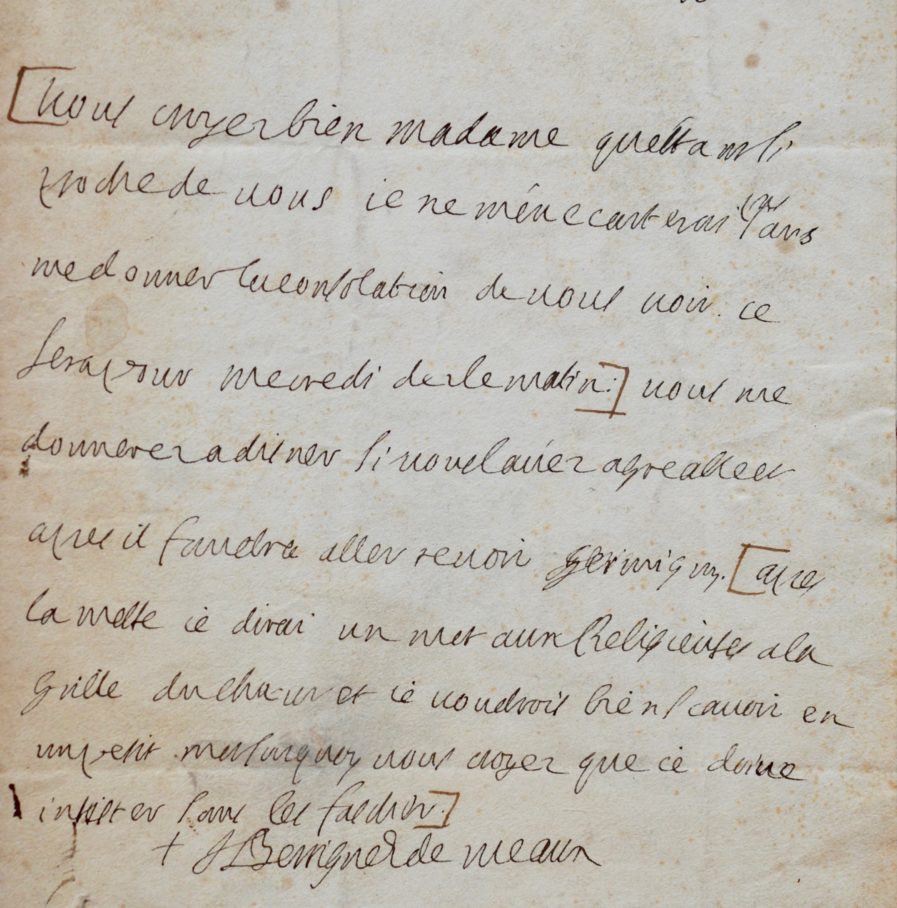 [vous croyez bien madame questant si
proche de vous ie ne m'en ecarterai pas sans
me donner la consolation de vous voir. ce
sera pour mecredi des le matin:] vous me
donnerez a disner si vous l'avez agreable et
apres il faudra aller revoir germigny. [apres
la messe ie dirai un mot aux Religieuses a la
grille du chœur et ie voudrois bien scavoir en
un petit mot surquoy vous croyez que ie doive
insister sans les fascher.]
+ J Benigne E de meaux